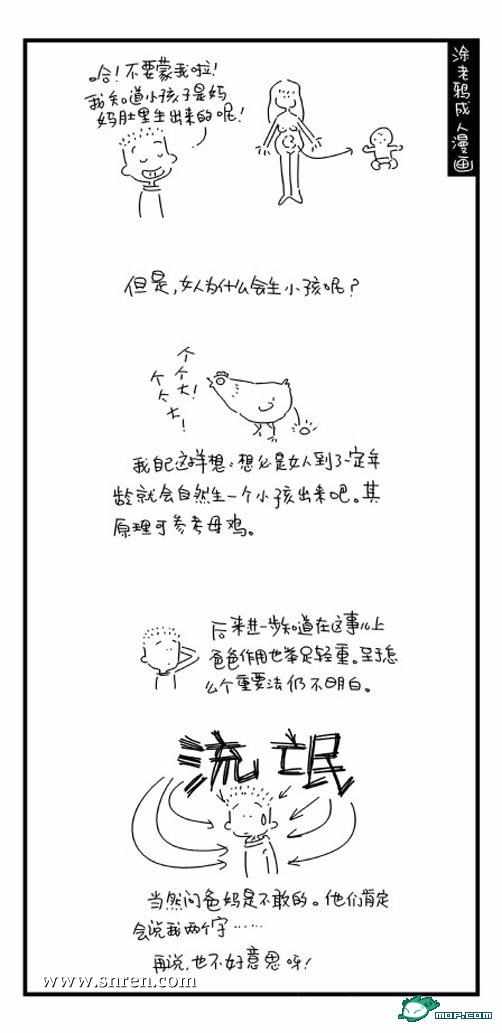 涂老鸦成人漫画
哈！不要蒙我啦！
我知道小孩子是妈
妈肚里生出来的呢！
但是，女人为什么会生小孩呢？
个
个
大！
个
个
大！
我自己这样想，想必是女人到了一定年
龄就会自然生一个小孩出来吧。其
原理可参考母鸡。
后来进一步知道在这事儿上
爸爸作用也举足轻重。至于怎
么个重要法仍不明白。
流氓
当然问爸妈是不敢的。他们肯定
会说我两个字……
再说，也不好意思呀！
www.snren.com
mop.com